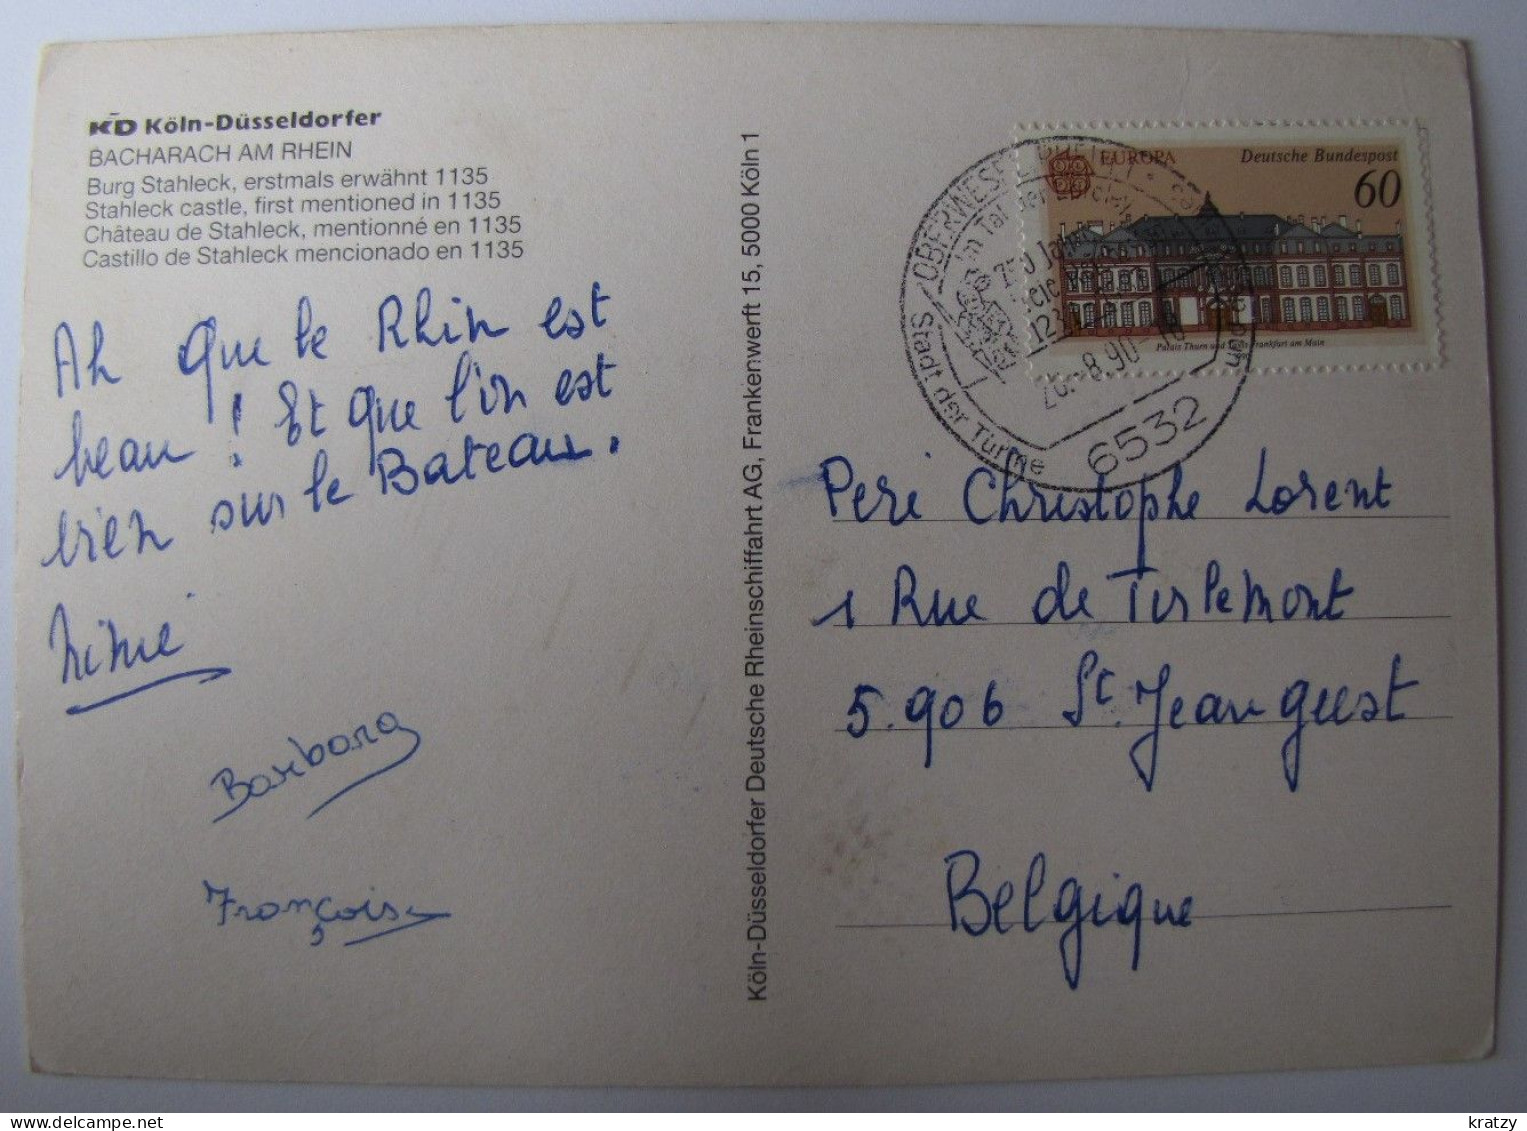 KD Köln-Düsseldorfer
BACHARACH AM RHEIN
Burg Stahleck, erstmals erwähnt 1135
Stahleck castle, first mentioned in 1135
Château de Stahleck, mentionné en 1135
Castillo de Stahleck mencionado en 1135
Ah que le Rhin est
beau ! Et que l'on est
bien sur le Bateau.
Mimie
Barbara
Françoise
Köln-Düsseldorfer Deutsche Rheinschiffahrt AG, Frankenwerft 15, 5000 Köln 1
EUROPA
Deutsche Bundespost
60
Palais Thurn und Taxis Frankfurt am Main
OBERWESEL
Im Tal der Loreley
750 Jahre
26.-8.90
6532
Stadt der Türme
Peri Christophe Lorent
1 Rue de Tirlemont
5.906 St. Jean geest
Belgique
kratzy